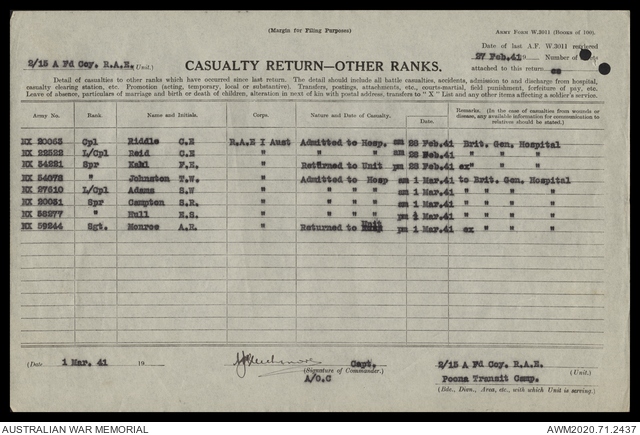 (Margin for Filing Purposes)
ARMY FORM W.3011 (BOOKS OF 100).
Date of last A.F. W.3011 rendered
27 Feb.41 Number of
2/15 A Fd Coy. R.A.E. (Unit.)
CASUALTY RETURN—OTHER RANKS.
attached to this return
Detail of casualties to other ranks which have occurred since last return. The detail should include all battle casualties, accidents, admission to and discharge from hospital,
casualty clearing station, etc. Promotion (acting, temporary, local or substantive). Transfers, postings, attachments, etc., courts-martial, field punishment, forfeiture of pay, etc.
Leave of absence, particulars of marriage and birth or death of children, alteration in next of kin with postal address, transfers to "X" List and any other items affecting a soldier's service.
Army No. Rank. Name and Initials. Corps. Nature and Date of Casualty. Date. Remarks. (In the case of casualties from wounds or disease, any available information for communication to relatives should be stated.)
NX 20053 Cpl Riddle C.E R.A.E I Aust Admitted to Hosp. am 28 Feb.41 Brit. Gen. Hospital
NX 22522 L/Cpl Reid C.E " " " " am 28 Feb.41 " " "
NX 34221 Spr F.E. " Returned to Unit pm 28 Feb.41 ex" " "
NX 54073 " Johnston T.W. " Admitted to Hosp am 1 Mar.41 to Brit. Gen. Hospital
NX 27510 L/Cpl Adams S.W " " " " am 1 Mar.41 " " " "
NX 20031 Spr Campton S.R. " " " " am 1 Mar.41 " " " "
NX 58277 " Hull H.S. " " " " pm 1 Mar.41 " " " "
NX 59244 Sgt. Monroe A.R. " Returned to Unit pm 1 Mar.41 ex " " "
(Date 1 Mar. 41 19 Capt. 2/15 A Fd Coy. R.A.E.
(Signature of Commander.) (Unit.)
A/O.C Poona Transit Camp.
(Bde., Divn., Area, etc., with which Unit is serving.)
AUSTRALIAN WAR MEMORIAL AWM2020.71.2437